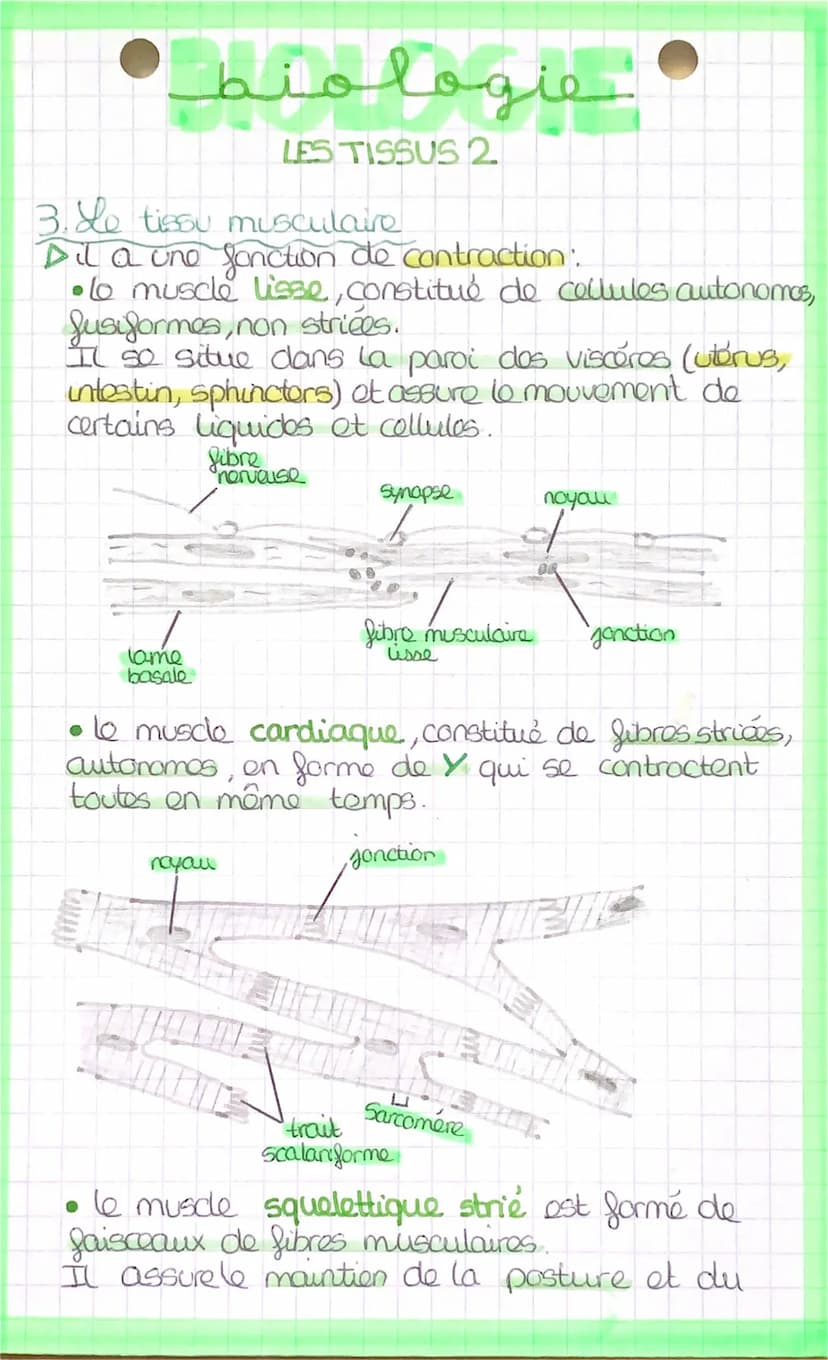 BIOLOGIE
biologie
LES TISSUS 2
3. Le tissu musculaire
▷ il a une fonction de contraction :
• le muscle lisse, constitué de cellules autonomes,
fusiformes, non striées.
Il se situe dans la paroi des viscères (utérus,
intestin, sphincters) et assure le mouvement de
certains liquides et cellules.
fibre
nerveuse
synapse
noyau
fibre musculaire
lisse
jonction
lame
basale
• le muscle cardiaque, constitué de fibres striées,
autonomes, en forme de Y qui se contractent
toutes en même temps.
noyau
jonction
trait
scalariforme
Sarcomère
• le muscle squelettique strié est formé de
faisceaux de fibres musculaires.
Il assure le maintien de la posture et du